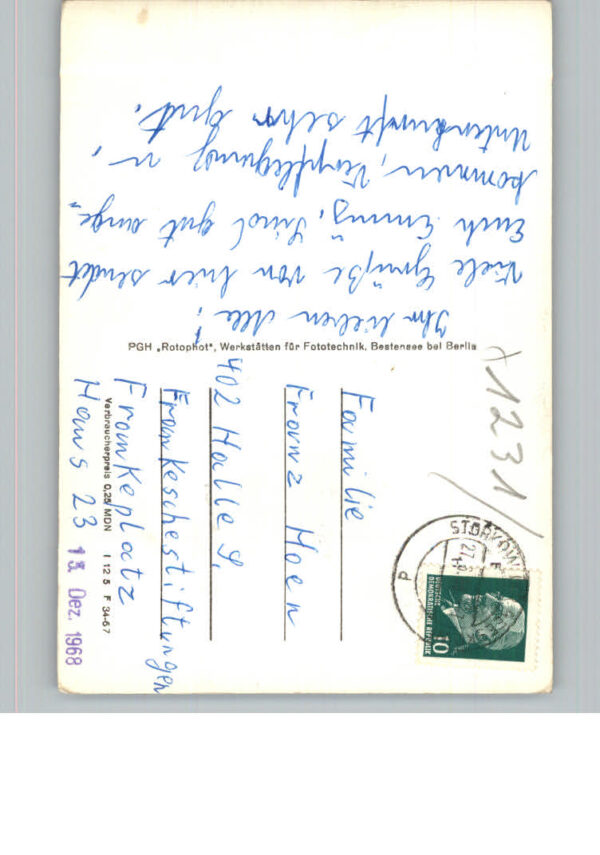 Ihr lieben Alle!
Viele Grüße von hier sendet
Euch Emmy, Sind gut ange-
kommen, Verpflegung u,
Unterkunft sehr gut.
PGH „Rotophot", Werkstätten für Fototechnik, Bestensee bei Berlin
Familie
Franz Hoen
402 Halle S,
Frankeschestiftungen
Frankeplatz
Haus 23
Verbraucherpreis 0,25 MDN I 12 5 F 34-67
13. Dez. 1968
x 1231/
STORKOW
27.
DEUTSCHE
DEMOKRATISCHE REPUBLIK
10